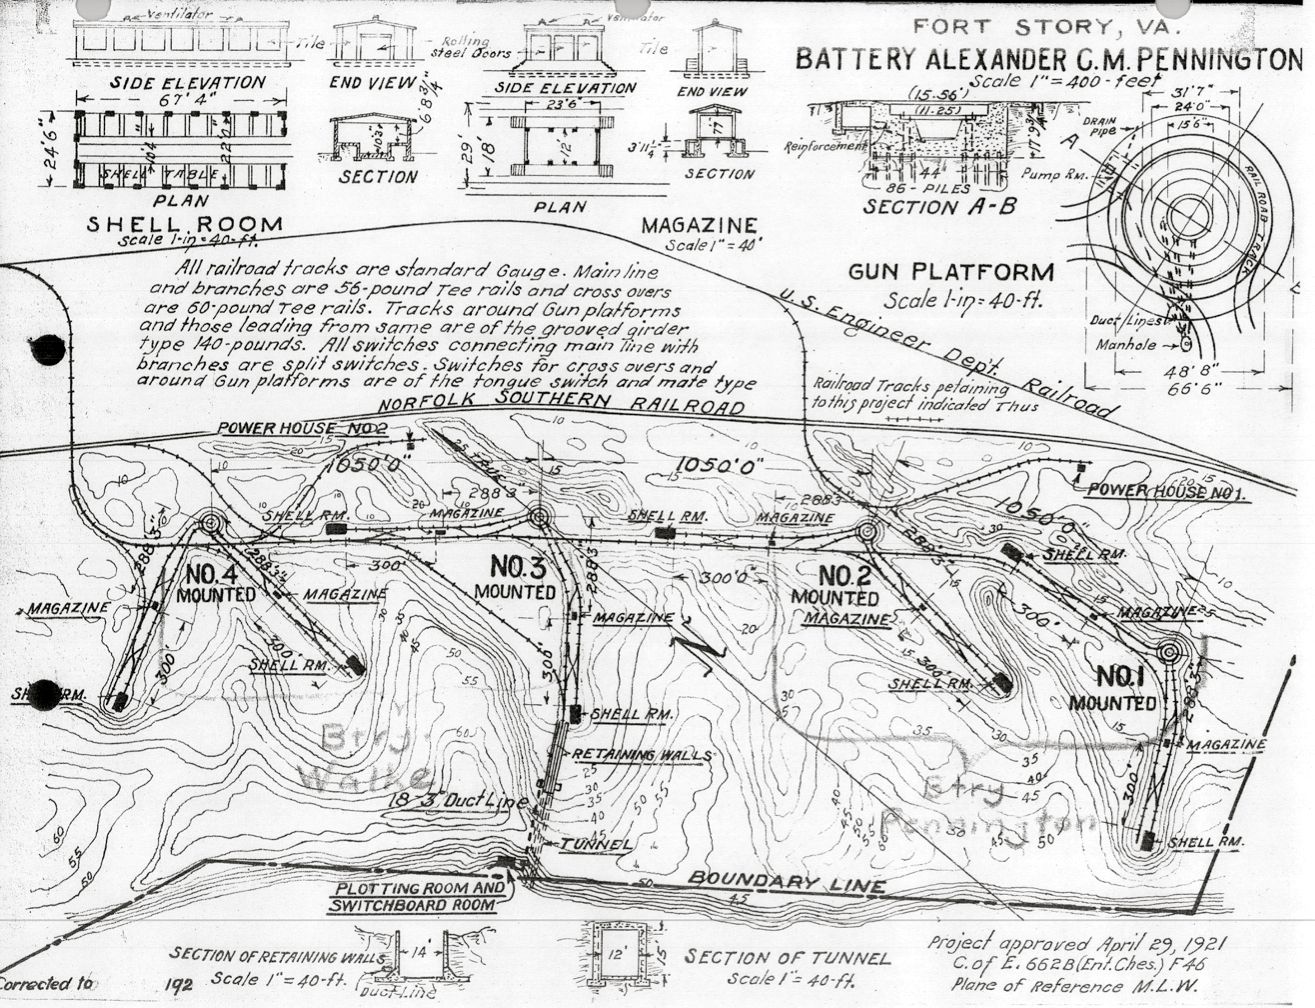 FORT STORY, VA.
BATTERY ALEXANDER C.M. PENNINGTON
Scale 1"=400-feet
Ventilator
Tile
SIDE ELEVATION
67'4"
24'6"
10'4"
22'0"
SHELL TABLE
PLAN
SHELL ROOM
Scale 1-in=40-ft.
Rolling
Steel Doors
END VIEW
6'8 3/4"
10'3"
SECTION
Ventilator
Tile
SIDE ELEVATION
23'6"
29'
18'
12'
PLAN
END VIEW
7'7"
3'11¼"
SECTION
MAGAZINE
Scale 1"=40'
(15.56')
(11.25)
Reinforcement
17'9¾"
44'
86-PILES
SECTION A-B
Pump Rm.
DRAIN
PIPE
A
31'7"
24'0"
15'6"
RAIL ROAD TRACK
Duct Lines
Manhole
48'8"
66'6"
GUN PLATFORM
Scale 1-in=40-ft.
All railroad tracks are standard Gauge. Main line
and branches are 56-pound Tee rails and cross overs
are 60-pound Tee rails. Tracks around Gun platforms
and those leading from same are of the grooved girder
type 140-pounds. All switches connecting main line with
branches are split switches. Switches for cross overs and
around Gun platforms are of the tongue switch and mate type
U.S. Engineer Dep't. Railroad
Railroad Tracks petaining
to this project indicated Thus
NORFOLK SOUTHERN RAILROAD
POWER HOUSE NO2
1050'0"
1050'0"
1050'0"
288'3"
288'3"
POWER HOUSE NO1.
SHELL RM.
MAGAZINE
SHELL RM.
MAGAZINE
SHELL RM.
288'3"
288'3"
288'3"
288'3"
300'
300'0"
300'
NO.4
MOUNTED
NO.3
MOUNTED
NO.2
MOUNTED
NO.1
MOUNTED
MAGAZINE
MAGAZINE
MAGAZINE
MAGAZINE
MAGAZINE
300'
300'
300'
300'
SHELL RM.
SHELL RM.
SHELL RM.
SHELL RM.
288'3"
MAGAZINE
300'
SHELL RM.
RETAINING WALLS
Btry
Walke
Btry
Pennington
18-3" Duct Line
TUNNEL
PLOTTING ROOM AND
SWITCHBOARD ROOM
BOUNDARY LINE
SECTION OF RETAINING WALLS
Scale 1"=40-ft.
14'
Duct-Line
12'
15'
SECTION OF TUNNEL
Scale 1"=40-ft.
Project approved April 29, 1921
C. of E. 662B (Ent. Ches.) F46
Plane of Reference M.L.W.
Corrected to 192